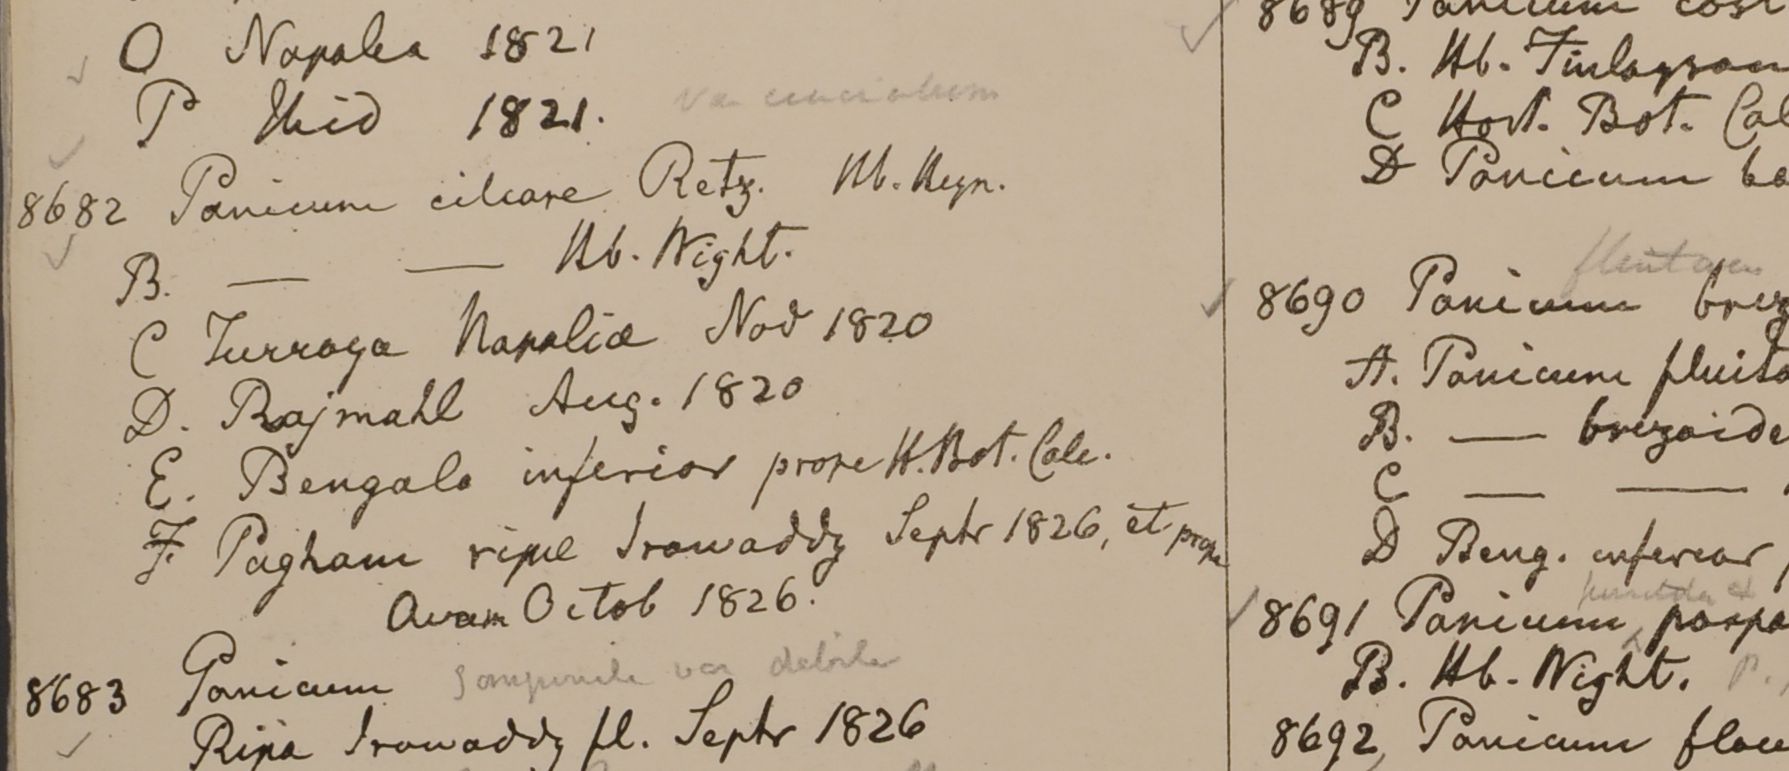 O Napalia 1821
P Ibid 1821.
8682 Panicum cilcare Retz. Hb. Heyn.
B. — — Hb. Wight.
C Turraya Napaliæ Nov 1820
D. Rajmahl Aug. 1820
E. Bengala inferior prope H. Bot. Calc.
F. Pagham ripæ Irawaddy Septr 1826, et prope
Avam Octob 1826.
8683 Panicum var debile
Ripa Irawaddy fl. Septr 1826
8689 Panicum cost
B. Hb. Finlayson
C Hort. Bot. Cal
D Panicum
8690 Panicum briz
A. Panicum fluita
B. — brizoide
C — —
D Beng. inferior
8691 Panicum paspa
B. Hb. Wight. P.
8692, Panicum flav